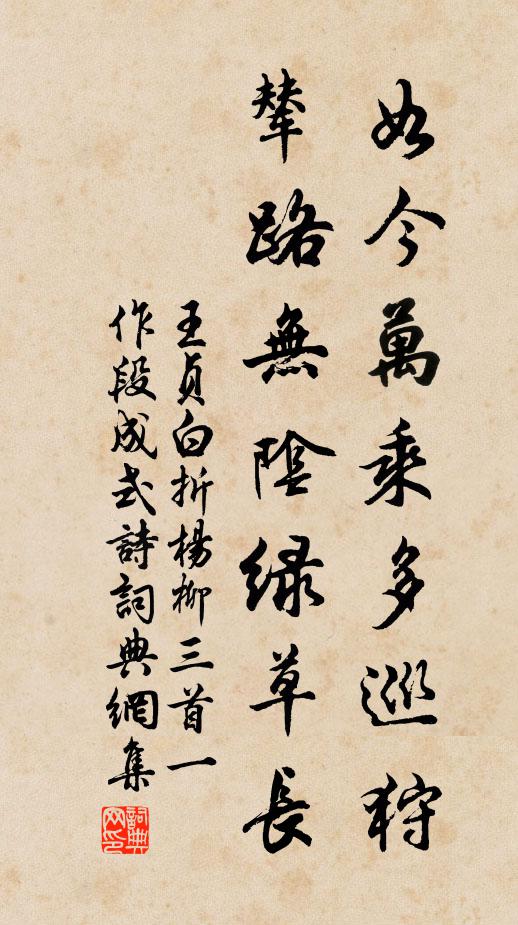 如今萬乘多巡狩
輦路無陰綠草長
王貞白折楊柳三首一
作段成式詩詞典網集
詞典网印